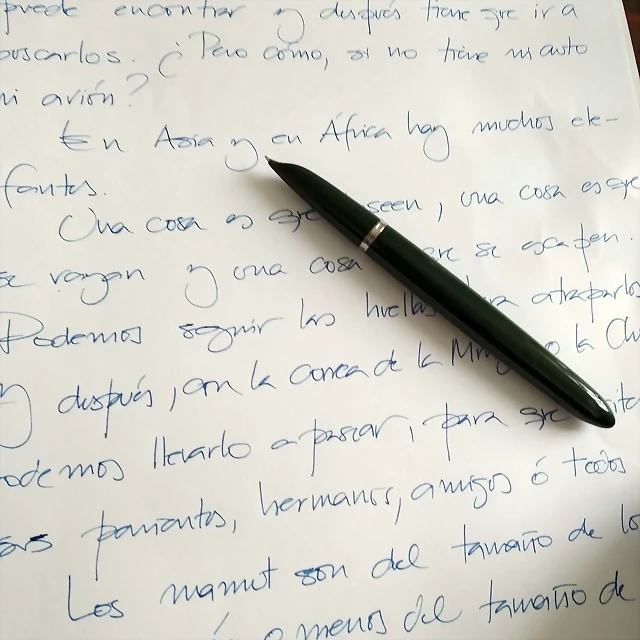 puede encontrar y después tiene que ir a
buscarlos. ¿Pero cómo, si no tiene ni auto
ni avión?
En Asia y en África hay muchos ele-
fantes.
Una cosa es que seen, una cosa es que
se vayan y una cosa que se escapen.
Podemos seguir las huellas para atraparlos
y después, con la correa de la o la
podemos llevarlo a pasear, para que
parientes, hermanos, amigos ó todos
Los mamut son del tamaño de lo
o menos del tamaño de